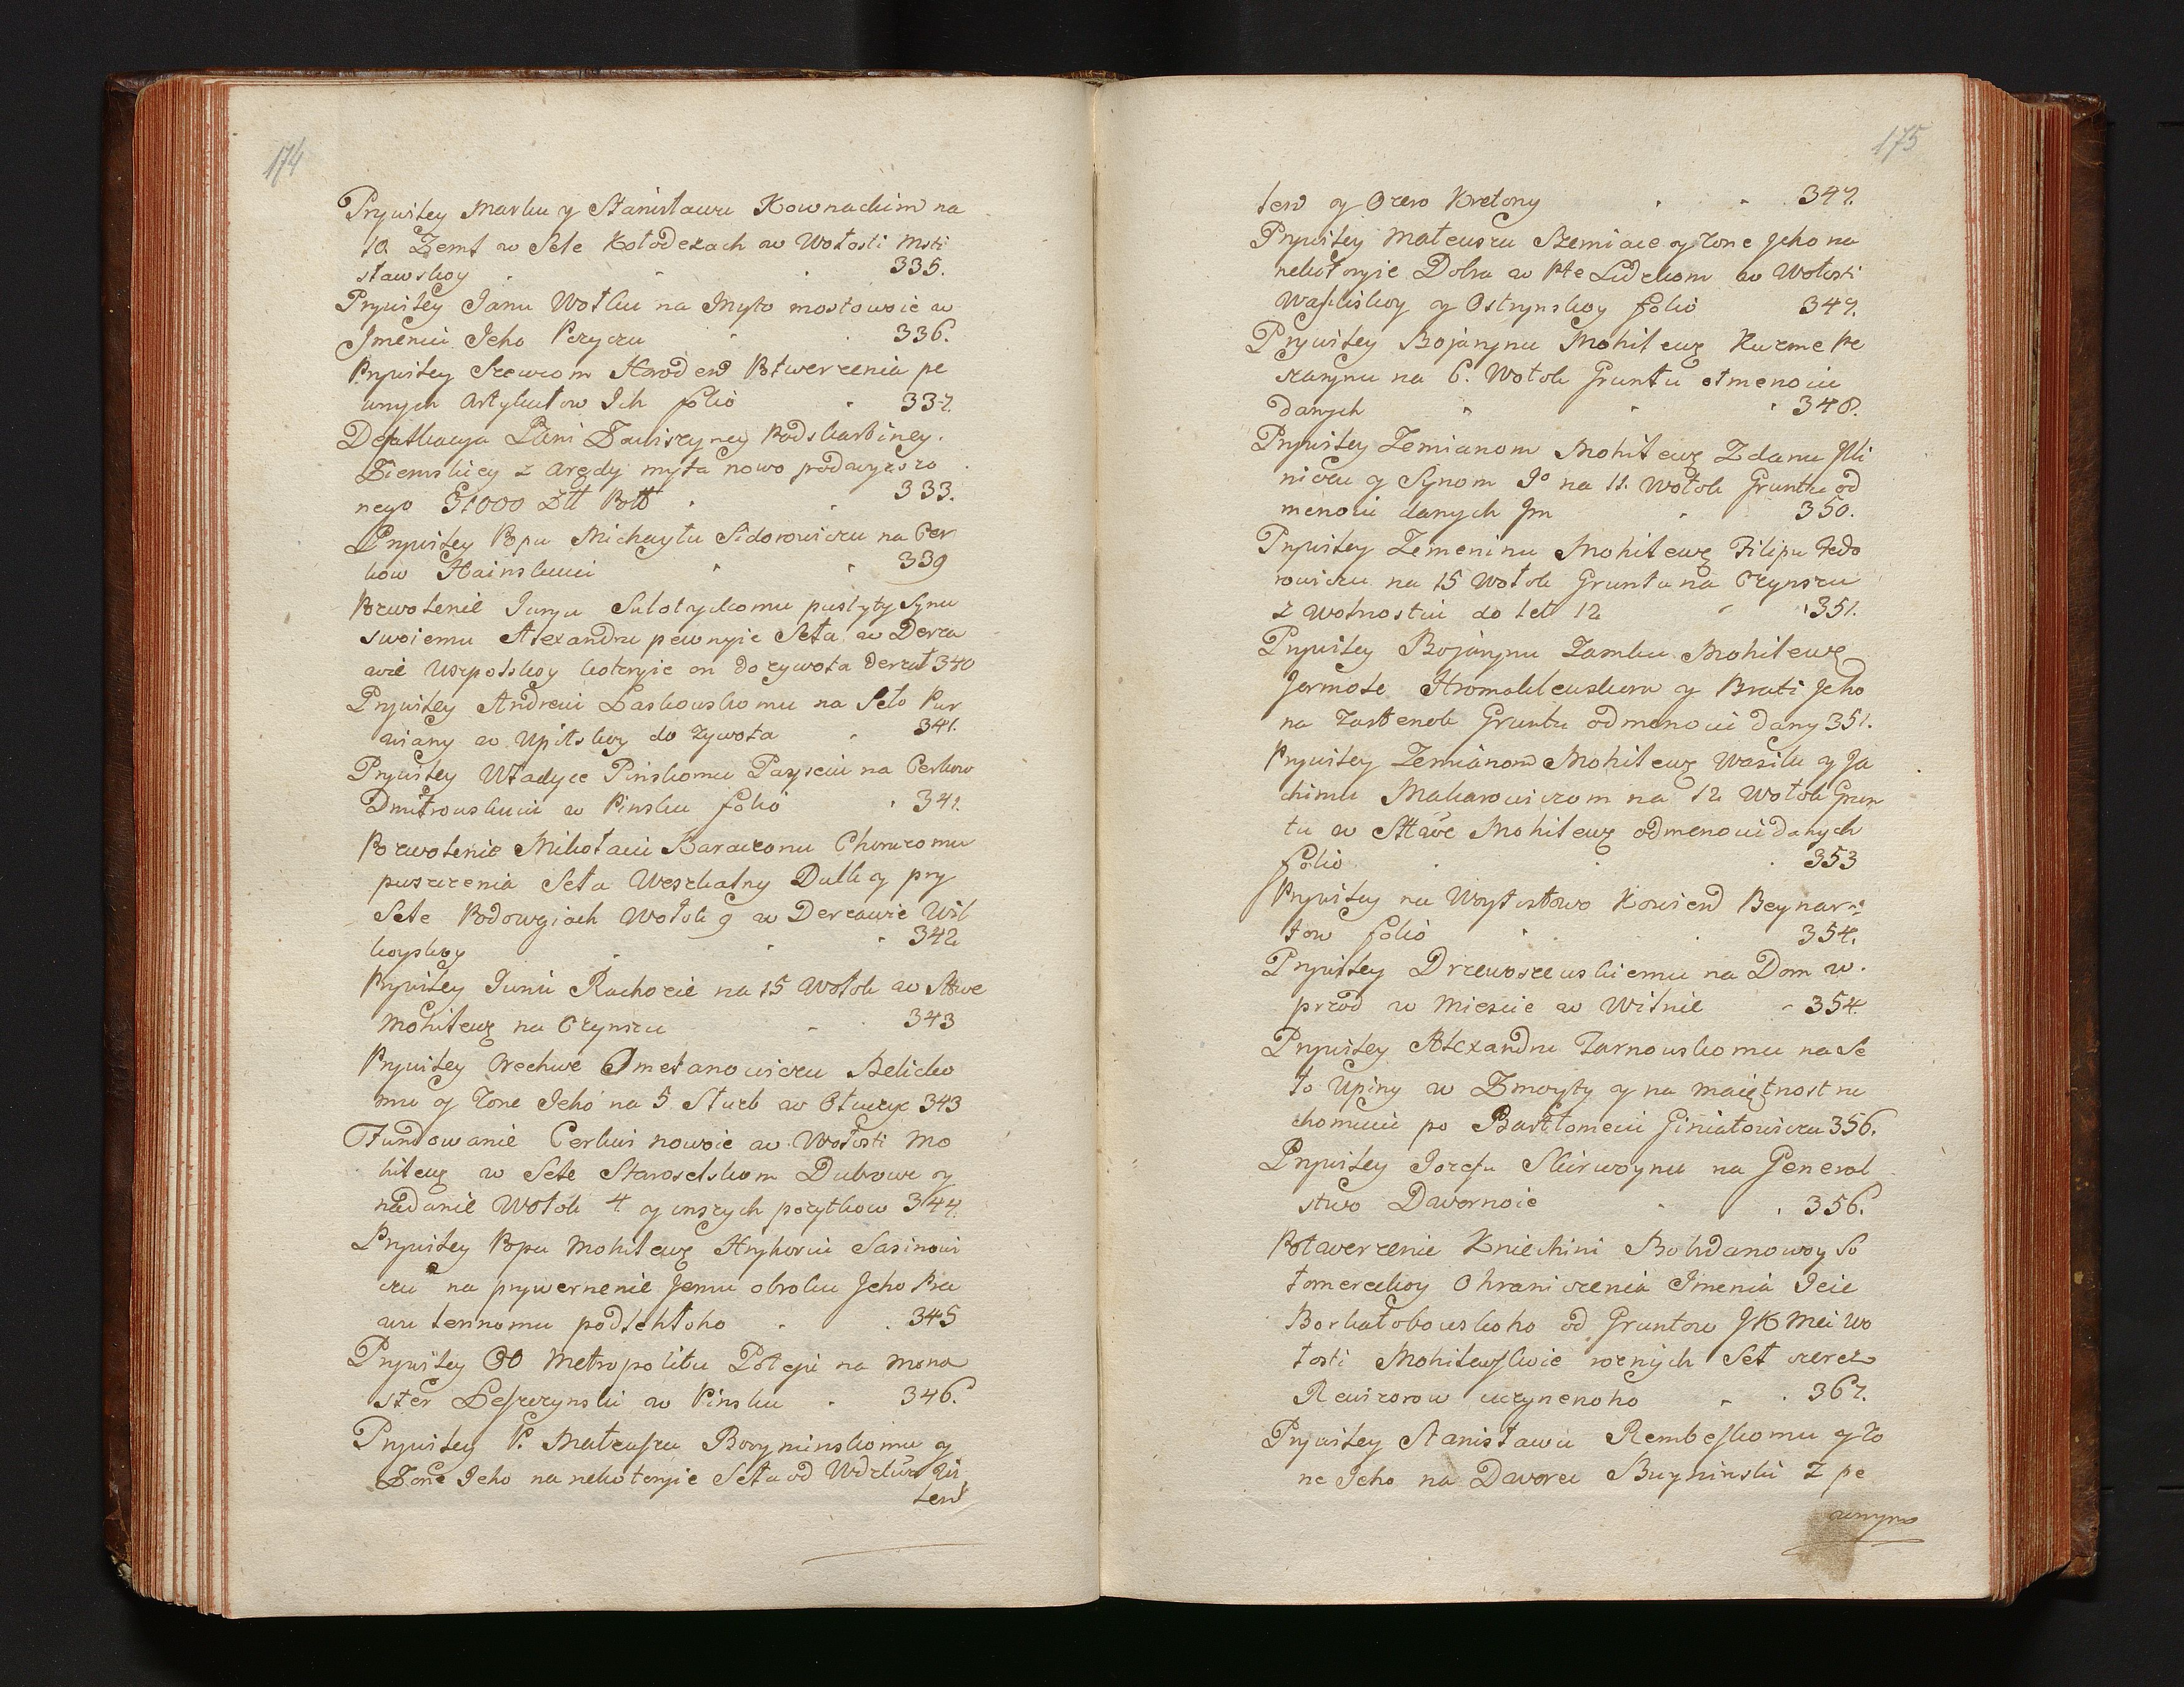 174
Prywiley Marku y Stanisławu Kownackim na
10. Zemł w Sele Kołodezach w Wołosti Msti
sławskoy 335.
Prywiley Janu Wołku na Myto mostowoie w
Jmeniu Jeho Peryczu 336.
Prywiley Szewcom Horoden Potwerżenia pe
wnych Artykułow Jch folio 337.
Dekłaracya Pani Zawiszyney Podskarbiney
Ziemskiey z Arędy myta nowo podwyższo
nego 31000 Złł Poll 333.
Prywiley Popu Michayłu Sidorowiczu na Cer
kow Hainskuiu 339
Pozwolenie Juryu Sulotyckomu pustyty Synu
swoiemu Alexandru pewnyie Seła w Derża
wie Uszpolskoy kotoryie on do żywota derżał 340
Prywiley Andreiu Laskowskomu na Seło Pur
wiany w Upitskoy do żywota 341.
Prywiley Władyce Pinskomu Paiseiu na Cerkow
Dmitrowskuiu w Pinsku folio 341.
Pozwolenie Mikołaiu Baraczonu Chorużomu
puszczenia Seła Weszkalny Dulki y pry
Sele Podowgiach Wołok 9 w Derżawie Wil
koyskoy 342
Prywiley Juriu Rachozie na 15 Wołok w Sttwe
Mohilewż na Czynszu 343
Prywiley Orechwe Omelanowiczu Belicko
mu y żone Jeho na 5. Służb w Ołuczyc 343
Fundowanie Cerkwi nowoie w Wołosti Mo
hilewż w Sele Staroselskom Dubrowe y
nadanie Wołok 4 y inszych pożytkow 344.
Prywiley Popu Mohilewż Hryhoriu Sasinowi
czu na prywernenie Jemu obroku Jeho Ru
wu lennomu podlehłoho 345
Prywiley Oo Metropolitu Poteju na Mona
ster Leszczynski w Pinsku 346.
Prywiley P. Mateuszu Boryminskomu y
Żone Jeho na nekotoryie Seła od
lew

175
lew y Ozero Kretony 347.
Prywiley Mateuszu Szemiace y żone Jeho na
nekotoryie Dobra w Pte Lidzkom w Wołosti
Wasiliskoy y Ostrynskoy folio 347.
Prywiley Bojarynu Mohilewż Kuzme Pe
szarynu na 6. Wołok Gruntu otmenoiu
danych 348.
Prywiley Zemianom Mohilewż Zdanu Jlli
niczu y Synom Jo na 11. Wołok Gruntu od
menoiu danych Jm 350.
Prywiley Zemeninu Mohilewż Filipu Fedo
rowiczu na 15 Wołok Gruntu na Czynszu
z Wolnostiu do let 12 351.
Prywiley Bojarynu Zamku Mohilewż
Jermole Hromakłewskom y Brati Jeho
na Zastenok Gruntu odmenoiu dany 351.
Prywiley Zemianom Mohilewż Wasilu y Ja
chimu Makarowiczom na 12 Wołok Grun
tu w Sttwe Mohilewż odmenoiu danych
folio 353
Prywiley na Woytostwo Kowień Beynar
tow folio 354.
Prywiley Drzewoszewskiemu na Dom w.
przod w Miescie w Wilnie 354
Prywiley Alexandru Tarnowskomu na Se
ło Upiny w Żmoyty y na maiętnost ru
chomuiu po Bartłomeiu Giniatowiczu 356.
Prywiley Jozefu Skirwoynu na General
stwo Dwornoie 356.
Potwerżenie Kniechini Bohdanowoy So
łomereckoy Ohraniczenia Jmenia Jeie
Borkołobowskoho od Gruntow JK Mci Wo
łosti Mohilewskoie roznych Seł czerez
Rewizorow uczynenoho 367.
Prywiley Stanisławu Rembeskomu y żo
ne Jeho na Dworec Buyninski z pe
wnymi